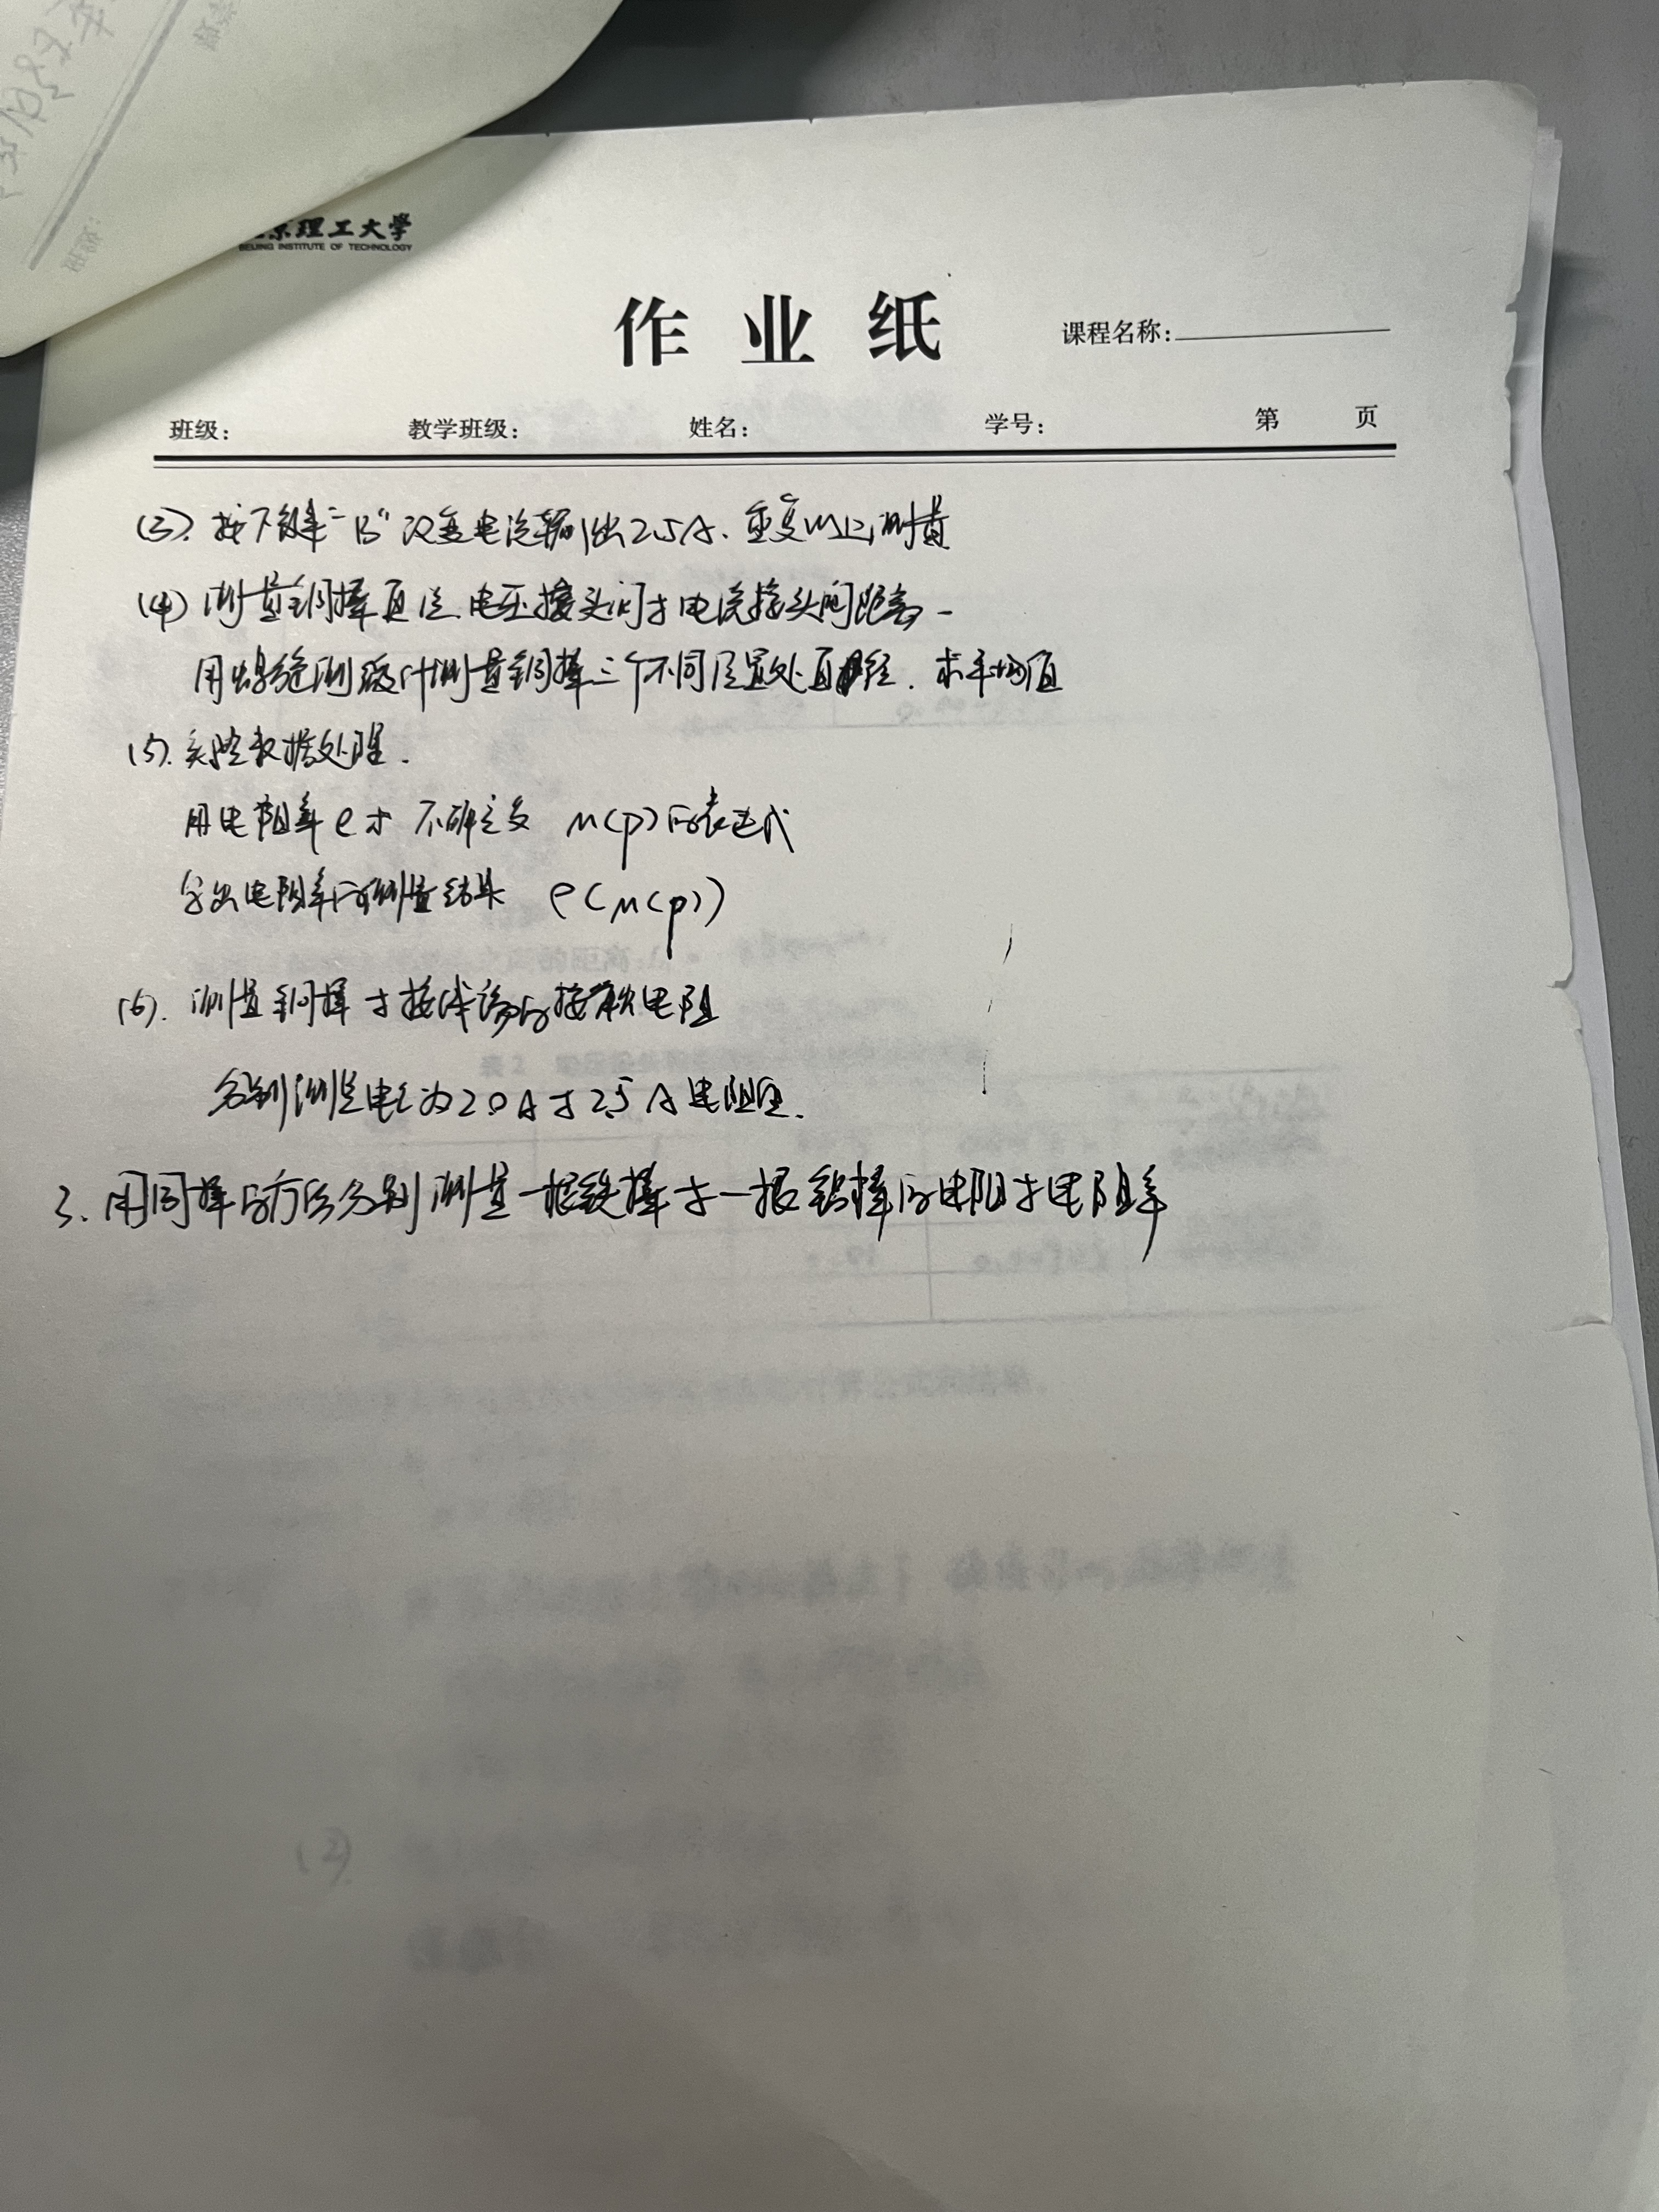 京理工大学
BEIJING INSTITUTE OF TECHNOLOGY
作业纸
课程名称:
班级: 教学班级: 姓名: 学号: 第 页
(3). 按下键"B"改变电流输出2.5A. 重复以上测量
(4) 测量铜棒直径、电压接头间与电流接头间距离
用螺旋测微计测量铜棒三个不同位置处直径. 求平均值
(5). 实验数据处理.
用电阻率ρ与不确定度 u(ρ)的表达式
写出电阻率的测量结果 ρ(u(ρ))
(6). 测量铜棒与接体间的接触电阻
分别测电流为2.0A与2.5A电阻值.
3. 用同样的方法分别测量一根铁棒与一根铝棒的电阻与电阻率